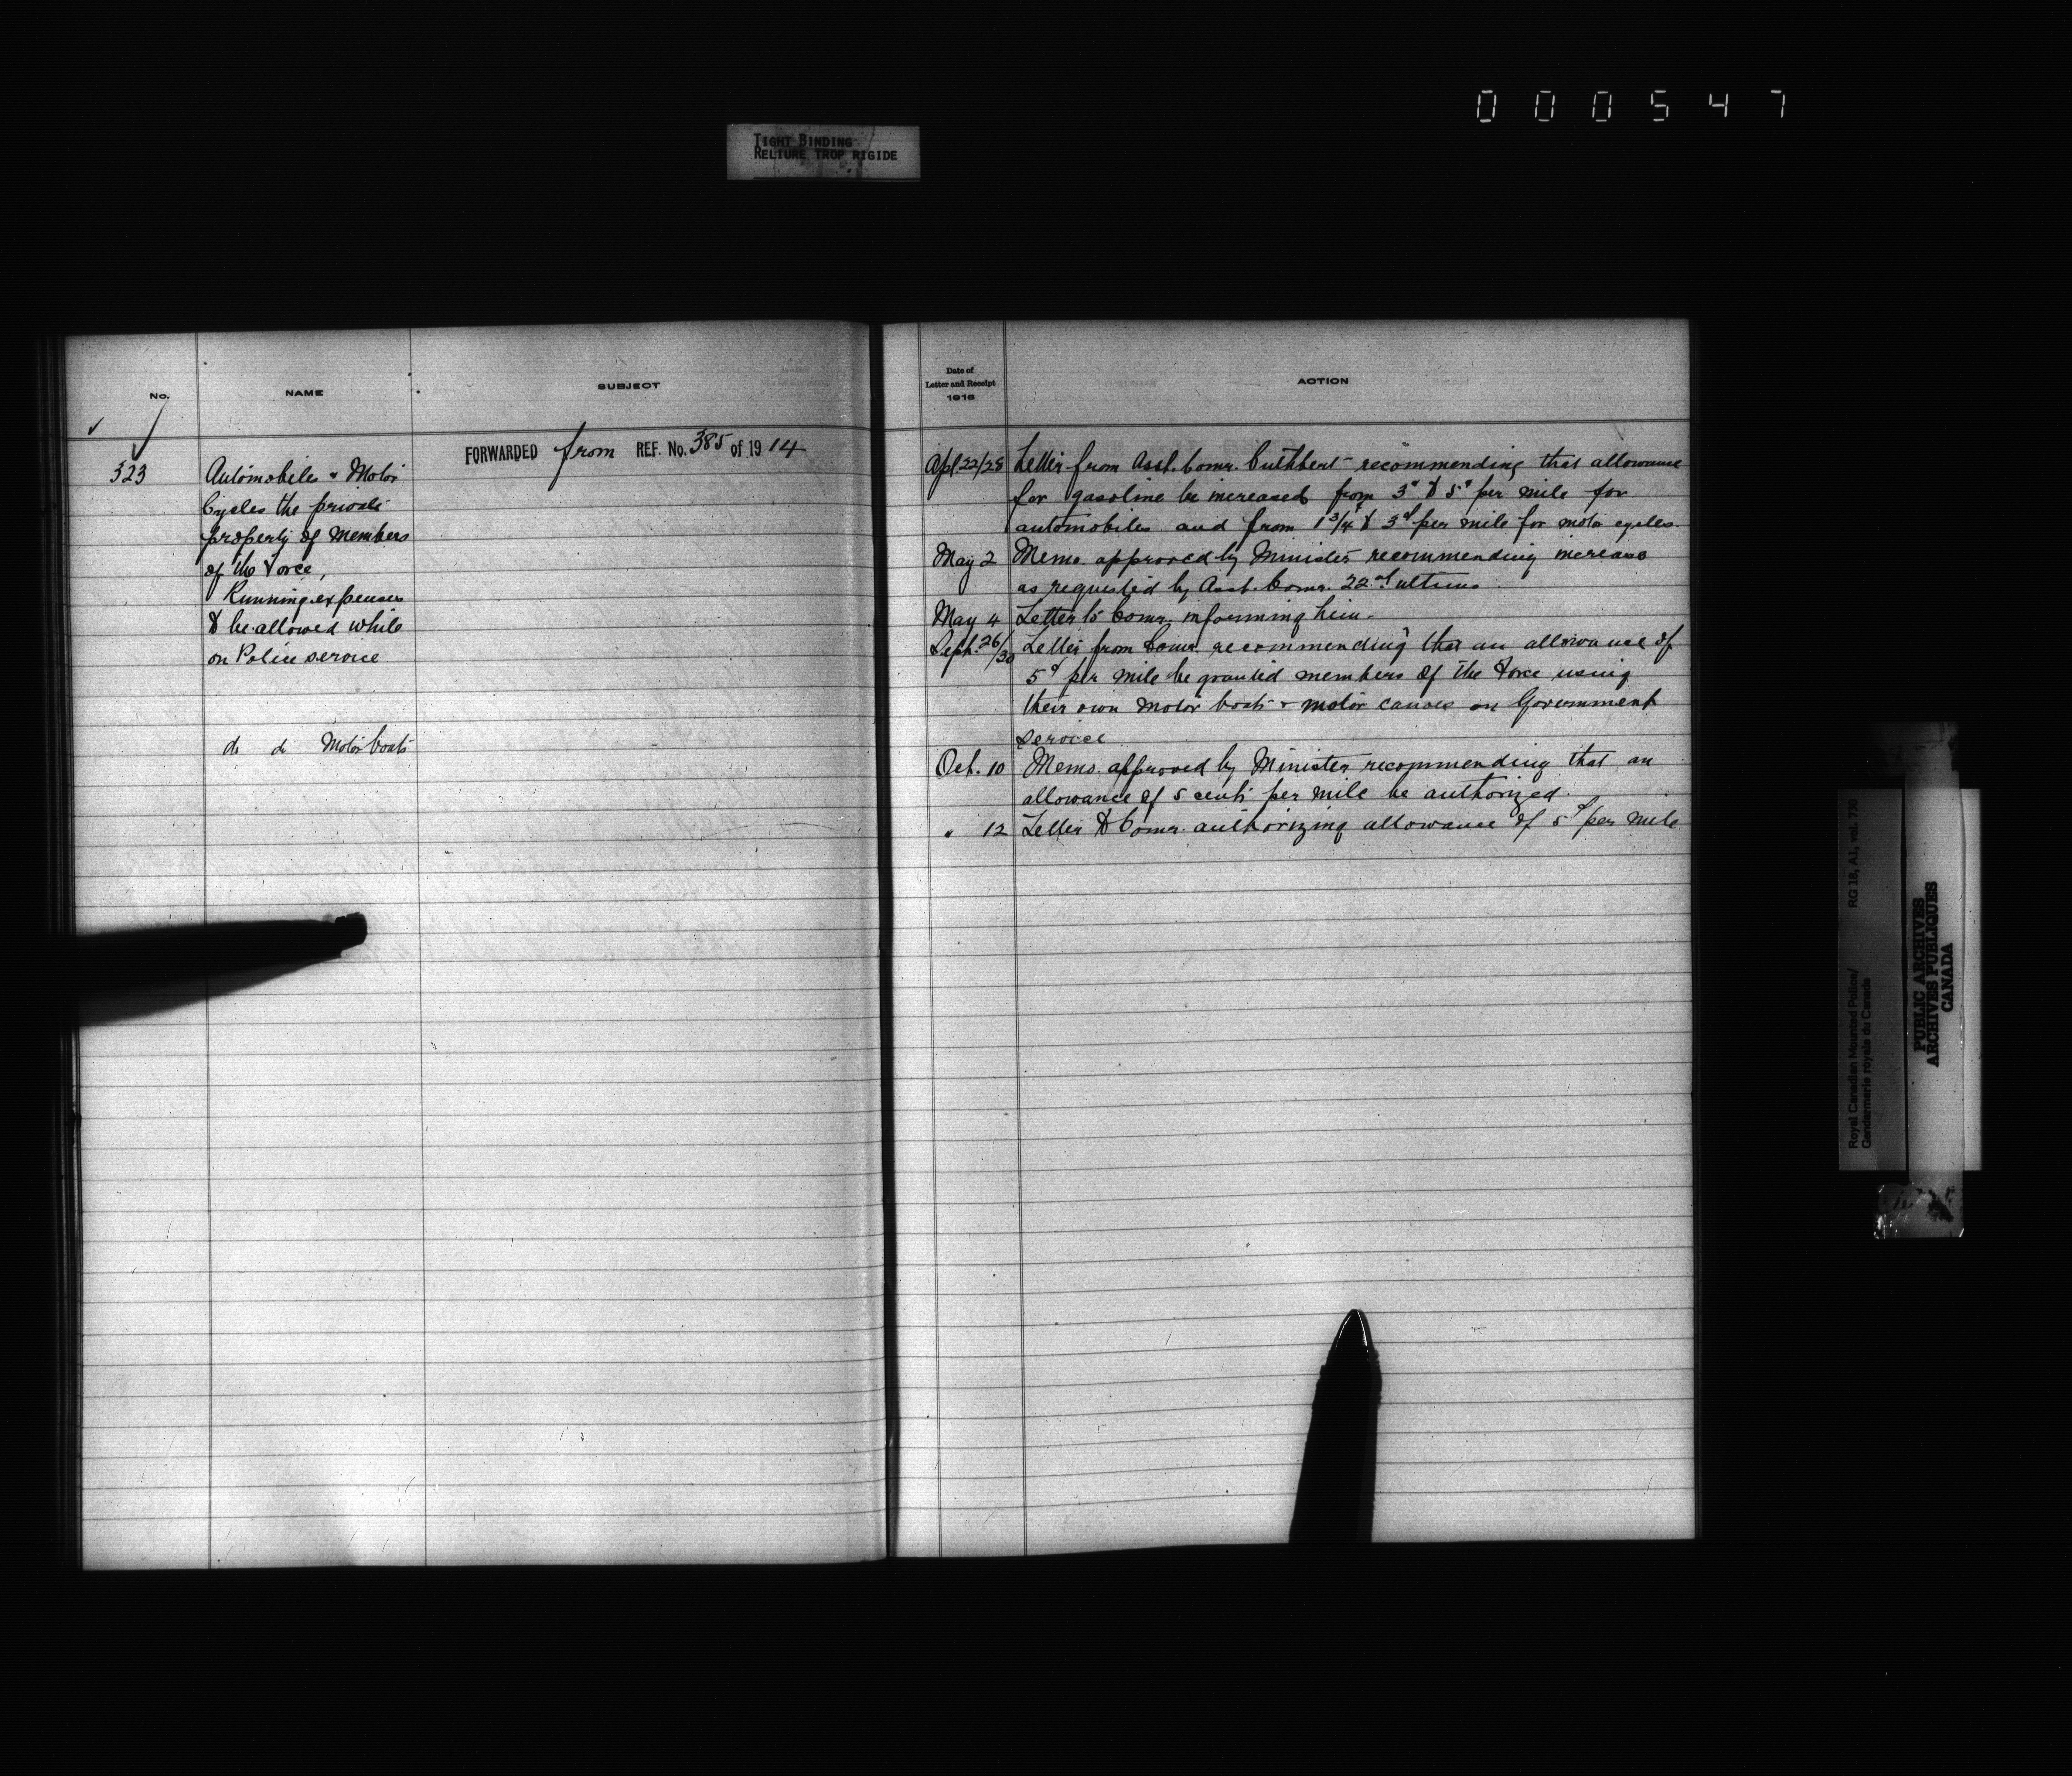 000547
TIGHT BINDING
RELIURE TROP RIGIDE
No.
NAME
SUBJECT
FORWARDED from REF. No. 385 of 1914
323
Automobiles & Motor
Cycles the private
property of members
of the Force,
Running expenses
to be allowed while
on Police service
do do Motor boats
Date of
Letter and Receipt
1916
ACTION
Apl 22/28 Letter from Asst. Comr. Cuthbert recommending that allowance
for gasoline be increased from 3¢ to 5¢ per mile for
automobiles and from 1 3/4 to 3¢ per mile for motor cycles.
May 2 Memo approved by Minister recommending increase
as requested by Asst. Comr. 22nd ultimo
May 4 Letter to Comr. informing him.
Sept. 26/30 Letter from Comr. recommending that an allowance of
5¢ per mile be granted members of the Force using
their own motor boats & motor canoes on Government
service
Oct. 10 Memo. approved by Minister recommending that an
allowance of 5 cents per mile be authorized.
" 12 Letter to Comr. authorizing allowance of 5¢ per mile
Royal Canadian Mounted Police/
Gendarmerie royale du Canada
RG 18, A1, vol. 730
PUBLIC ARCHIVES
ARCHIVES PUBLIQUES
CANADA